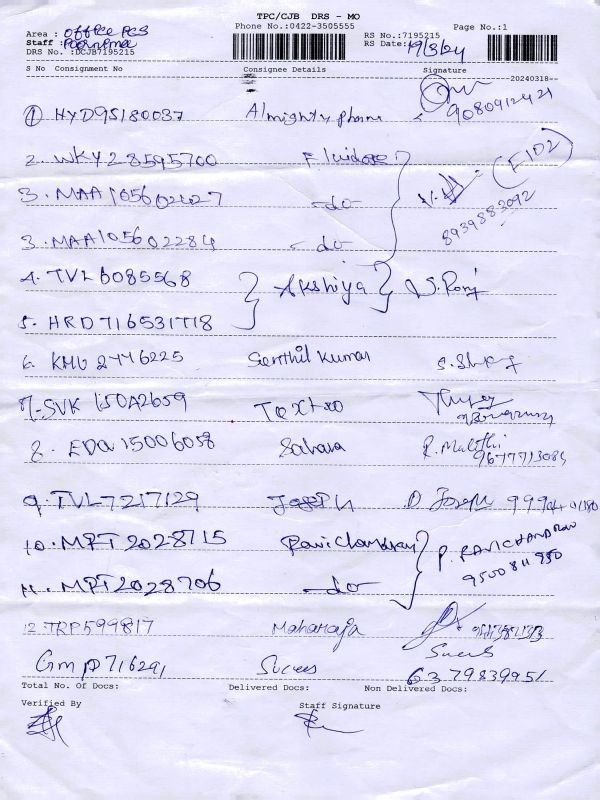 TPC/CJB DRS - MO
Phone No.:0422-3505555 Page No.:1
Area : office PCS RS No.:7195215
Staff : Poornima RS Date: 19/3/24
DRS No. :DCJB7195215
S No Consignment No Consignee Details Signature
20240318
1 HYD95180037 Almighty pharma 9080912421
2. WKY28595700 Fluidose (F102)
3. MAA105602427 -do 8939883092
3. MAA105602284 -do
4. TVL6085568 Akshiya S. Ponj
5. HRD716531718
6. KMU2776225 Senthil Kumar
7. SVK150A2659
8. EDA15006058 Sahara R. Malathi
9677713084
9. TVL7217129 Joseph D. Joseph 99940
10. MPT2028715 Ravichandran P. RAVICHANDRAN
11. MPT2028706 -do 9500811950
12. TRP599817 Maharaja
GMP716291 Sucess Sucess
6379839951
Total No. Of Docs: Delivered Docs: Non Delivered Docs:
Verified By Staff Signature